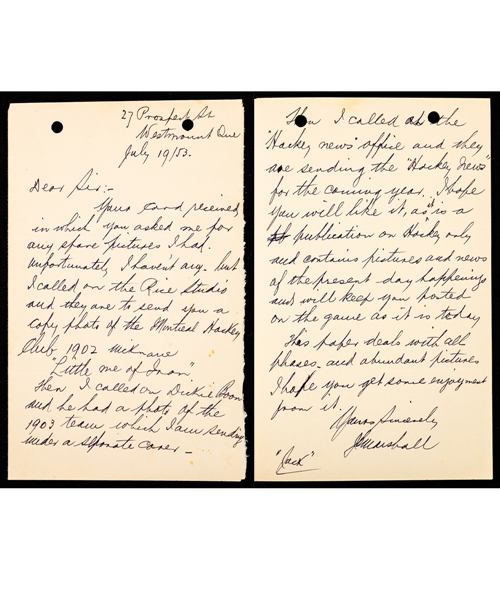 27 Prospect St
Westmount Que
July 19/53.
Dear Sir:-
Yours card received
in which you asked me for
any spare pictures I had.
Unfortunately I haven't any. but
I called on the Rice Studio
and they are to send you a
copy photo of the Montreal Hockey
Club. 1902 nickname
"Little men of Iron".
Then I called on Dickie Boon
and he had a photo of the
1903 team which I am sending
under a separate cover -
Then I called at the
"Hockey news" office and they
are sending the "Hockey News"
for the coming year. I hope
you will like it, as it is a
publication on Hockey only
and contains pictures and news
of the present day happenings
and will keep you posted
on the game as it is today
This paper deals with all
phases. and abundant pictures
I hope you get some enjoyment
from it.
Yours Sincerely
J Marshall
"Jack"